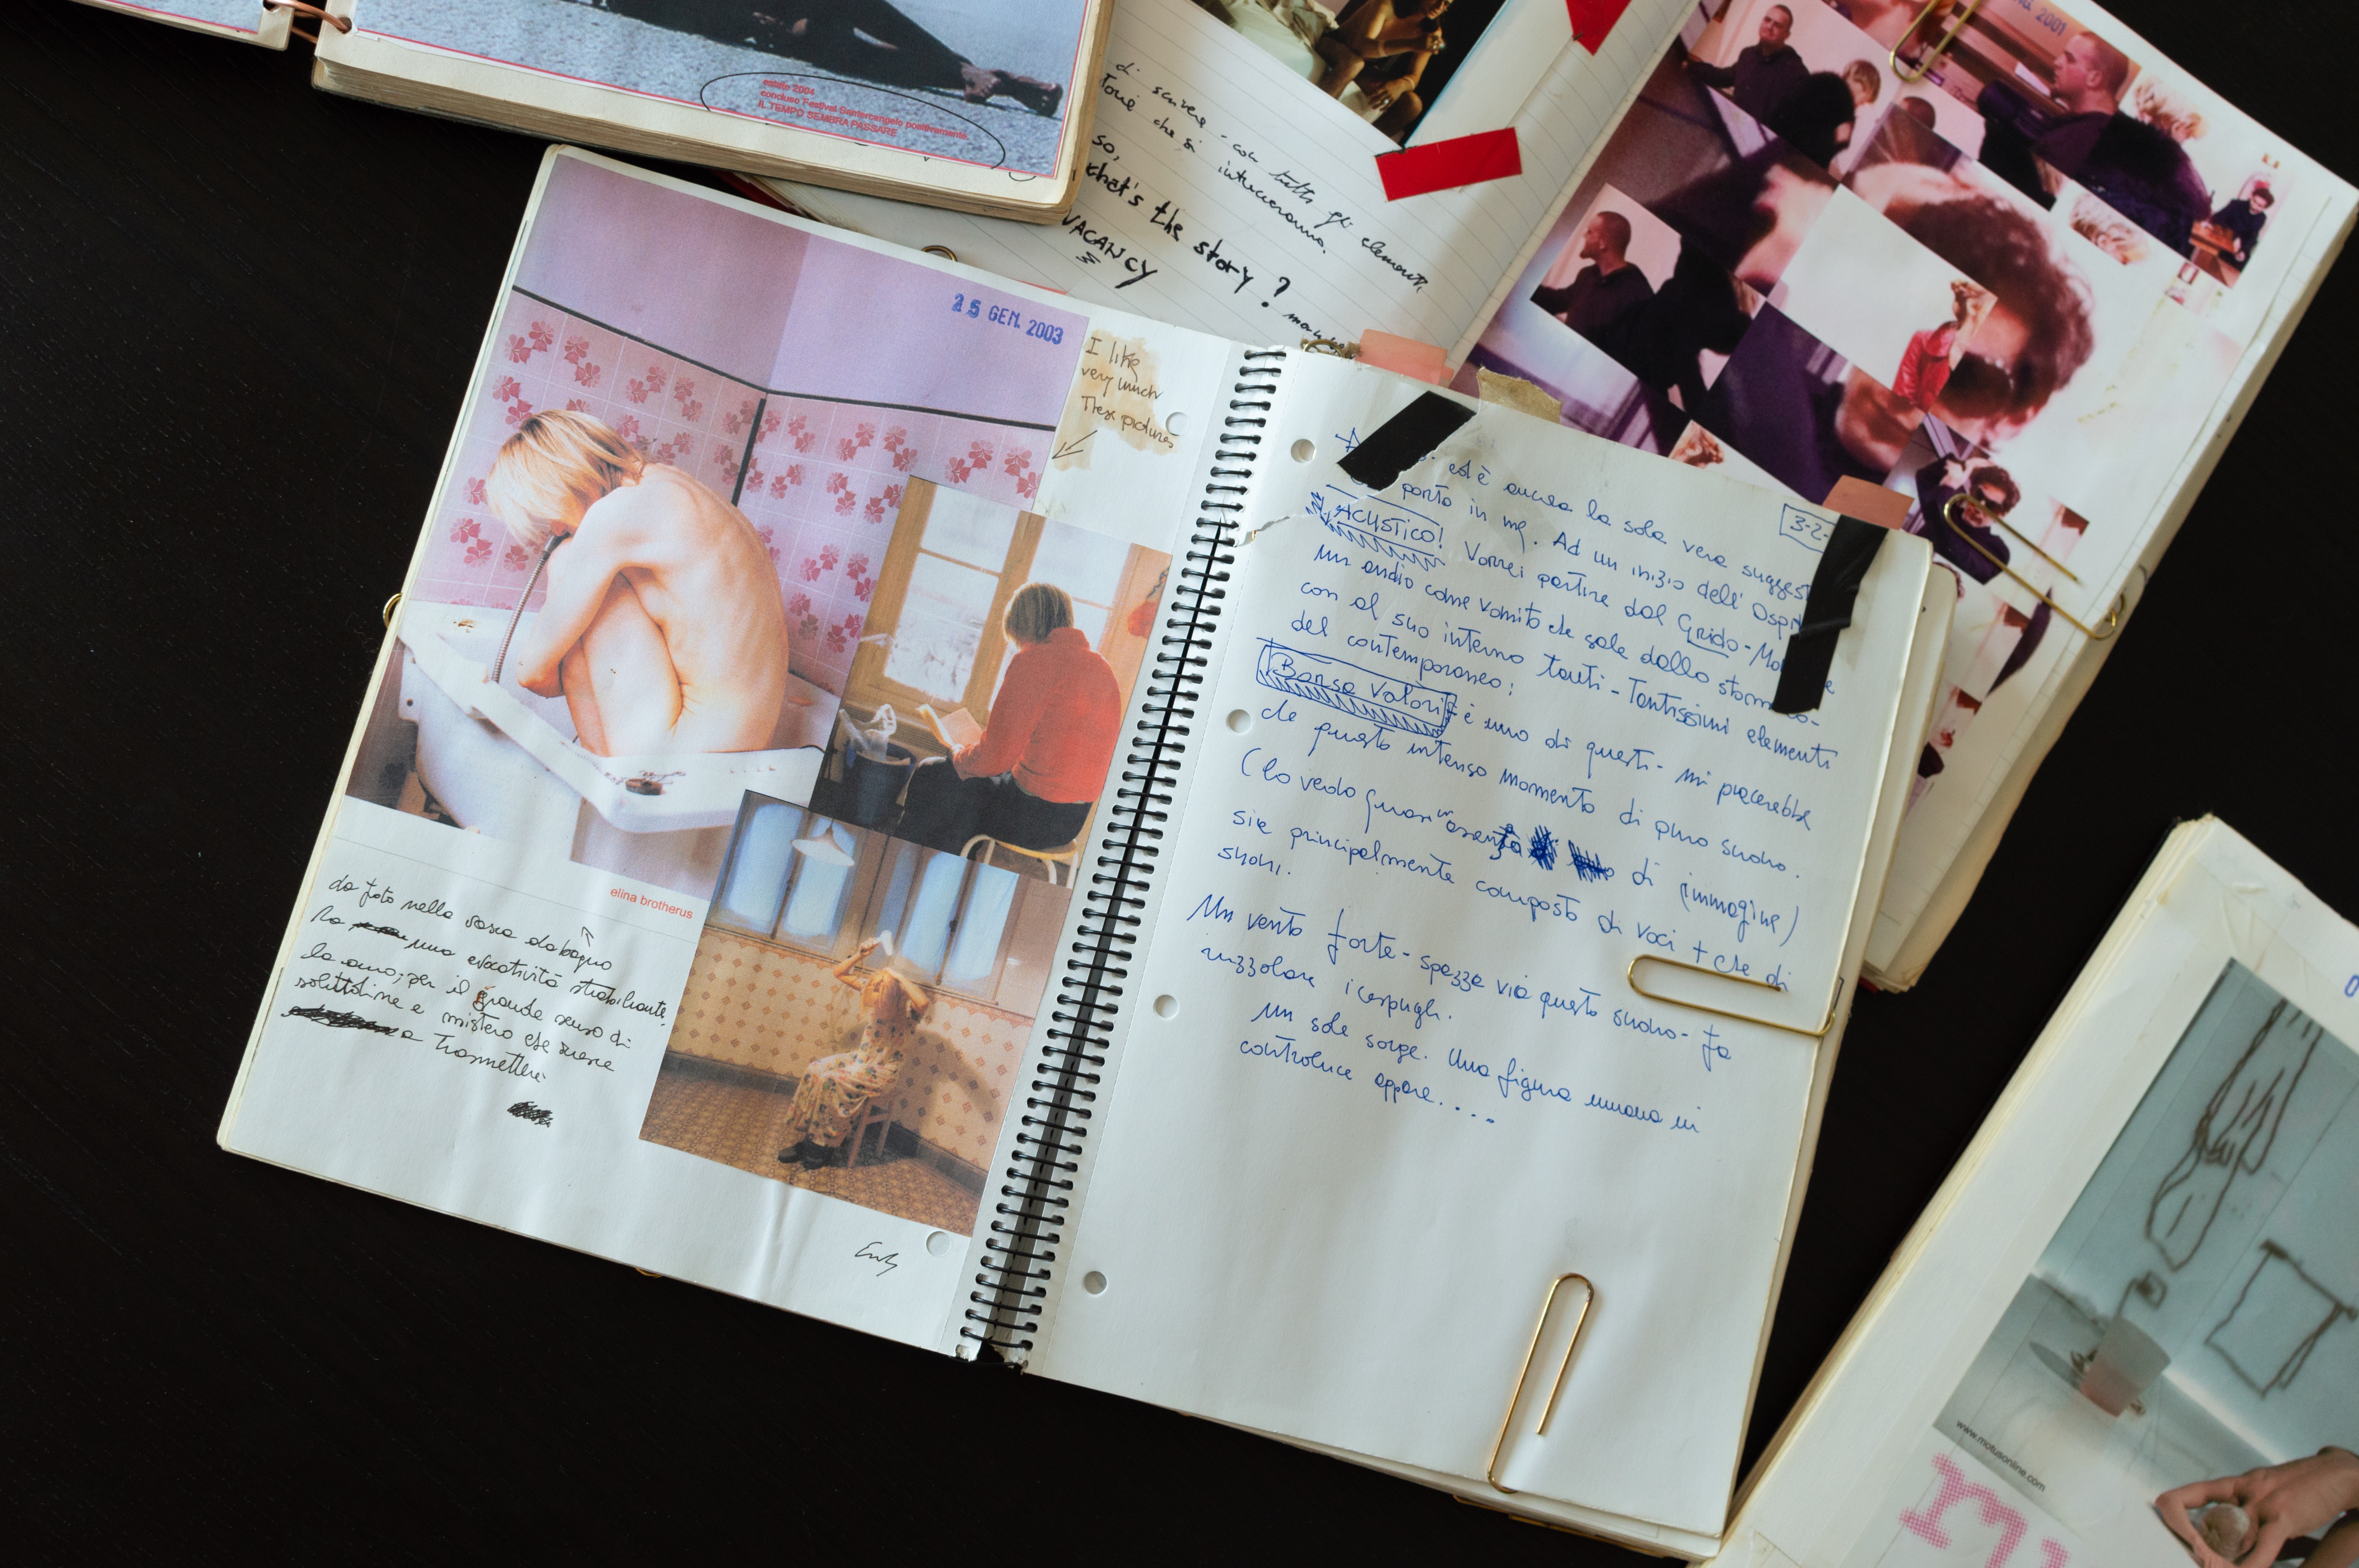 estate 2004
concluso Festival Santarcangelo positivamente.
IL TEMPO SEMBRA PASSARE
di scrivere - con tutti gli elementi,
che si intrecceranno.
so,
what's the story?
VACANCY
2001
25 GEN. 2003
I like
very much
These pictures
elina brotherus
la foto nella vasca da bagno
ha una evocatività strabiliante.
la amo; per il grande senso di
solitudine e mistero che riesce
a trasmettere.
3-2-
ed è ancora la sola vera suggest
porto in me. Ad un inizio dell' Ospite
ACUSTICO! Vorrei partire dal Grido-Mo
un audio come vomito che sale dallo stomaco-
con al suo interno tanti - Tantissimi elementi
del contemporaneo:
Borsa Valori è uno di questi - mi piacerebbe
che questo intenso momento di puro suono.
(lo vedo quasi in assenza di immagine)
sia principalmente composto di voci + che di
suoni.
Un vento forte - spazza via questo suono - fa
ruzzolare i cespugli.
Un sole sorge. Una figura umana in
controluce appare....
www.motusonline.com